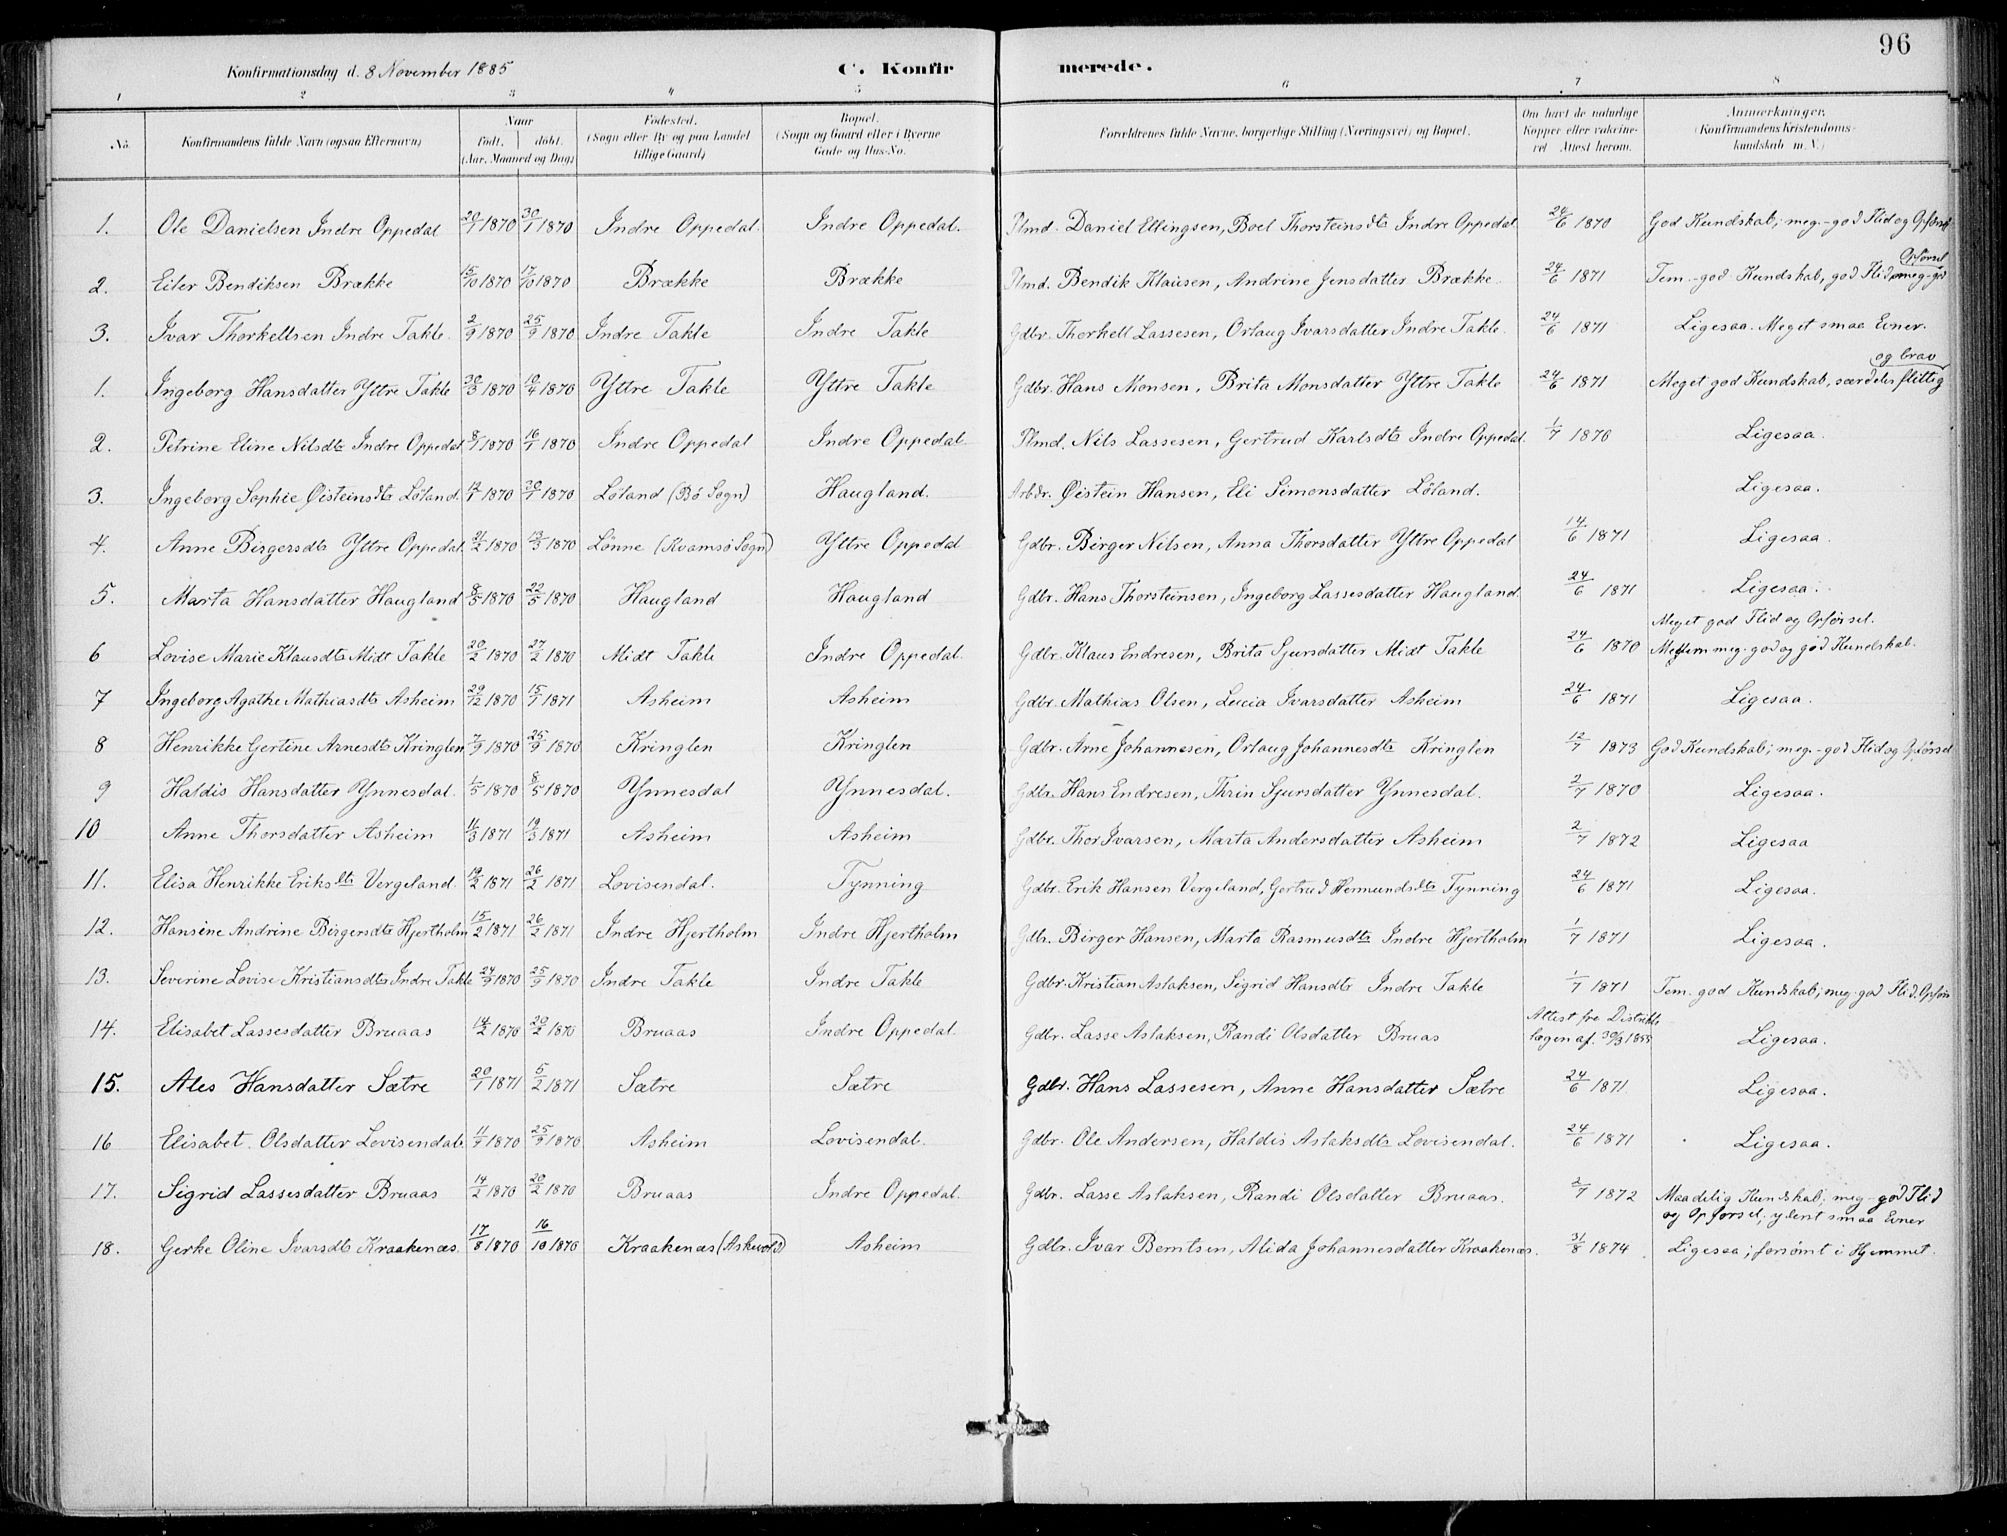 96
Konfirmationsdag d. 8 November 1885 C. Konfirmerede.
1 2 3 4 5 6 7 8
No. Konfirmandens fulde Navn (ogsaa Efternavn) Naar født, døbt. (Aar, Maaned og Dag) Fødested. (Sogn eller By og paa Landet tillige Gaard) Bopæl. (Sogn og Gaard eller i Byerne Gade og Hus-No. Forældrenes fulde Navne, borgerlige Stilling (Næringsvei) og Bopæl. Om havt de naturlige Kopper eller vakcineret. Attest herom. Anmærkninger. (Konfirmandens Kristendomskundskab m. V.)
1. Ole Danielsen Indre Oppedal 20/1 1870 30/1 1870 Indre Oppedal. Indre Oppedal. Plmd. Daniel Ellingsen, Boel Thorsteinsdtr Indre Oppedal 24/6 1870 God Kundskab; meg.-god Flid og Opførsel
2. Eiler Bendiksen Brække 15/10 1870 17/10 1870 Brække Brække Plmd. Bendik Klausen, Andrine Jensdatter Brække. 24/6 1871 Tem.-god Kundskab, god Flid, meg-god Opførsel
3. Ivar Thorkellsen Indre Takle. 2/9 1870 25/9 1870 Indre Takle Indre Takle Gdbr. Thorkell Lassesen, Orlaug Ivarsdatter Indre Takle. 24/6 1871 Ligesaa. Meget smaa Evner.
1. Ingeborg Hansdatter Yttre Takle 30/3 1870 10/4 1870 Yttre Takle Yttre Takle Gdbr. Hans Monsen, Brita Monsdatter Yttre Takle 24/6 1871 Meget god Kundskab, særdeles flittig og brav
2. Petrine Eline Nilsdtr Indre Oppedal 8/1 1870 16/1 1870 Indre Oppedal Indre Oppedal Plmd. Nils Lassesen, Gertrud Karlsdtr Indre Oppedal. 1/7 1870 Ligesaa.
3. Ingeborg Sophie Øisteinsdtr Löland. 12/1 1870 30/1 1870 Löland (Bö Sogn) Haugland. Arbdr. Øistein Hansen, Eli Simonsdatter Löland. Ligesaa.
4. Anne Birgersdtr Yttre Oppedal. 21/2 1870 13/3 1870 Lönne (Kvamsö Sogn) Yttre Oppedal Gdbr. Birger Nilsen, Anna Thorsdatter Yttre Oppedal 14/6 1871 Ligesaa.
5. Marta Hansdatter Haugland 8/5 1870 22/5 1870 Haugland Haugland Gdbr. Hans Thorsteinsen, Ingeborg Lassesdatter Haugland. 24/6 1871 Ligesaa.
6 Lovise Marie Klausdtr Midt Takle 20/2 1870 27/2 1870 Midt Takle Indre Oppedal. Gdbr. Klaus Endresen, Brita Sjursdatter Midt Takle 24/6 1870 Meget god Flid og Opførsel. Mellem meg. god og god Kundskab.
7 Ingeborg Agathe Mathiasdtr Asheim 29/12 1870 15/1 1871 Asheim Asheim Gdbr. Mathias Olsen, Lucia Ivarsdatter Asheim 24/6 1871 Ligesaa.
8 Henrikke Gertine Arnesdtr Kringlen 7/9 1870 25/9 1870 Kringlen Kringlen Gdbr. Arne Johannesen, Orlaug Johannesdtr Kringlen 12/7 1873 God Kundskab; meg.-god Flid og Opførsel
9 Haldis Hansdatter Ynnesdal. 1/5 1870 8/5 1870 Ynnesdal Ynnesdal. Gdbr. Hans Endresen, Thrin Sjursdatter Ynnesdal. 2/7 1870 Ligesaa.
10 Anne Thorsdatter Asheim 11/3 1871 19/3 1871 Asheim Asheim Gdbr. Thor Ivarsen, Marta Andersdatter Asheim 2/7 1872 Ligesaa
11. Elisa Henrikke Eriksdtr Vergeland. 19/2 1871 26/2 1871 Lovisendal. Tynning Gdbr. Erik Hansen Vergeland, Gertrud Hermundsdtr Tynning 24/6 1871 Ligesaa.
12. Hansine Andrine Birgersdtr Hjertholm 15/2 1871 26/2 1871 Indre Hjertholm Indre Hjertholm Gdbr. Birger Hansen, Marta Rasmusdtr Indre Hjertholm 1/7 1871 Ligesaa.
13. Severine Lovise Kristiansdtr Indre Takle 24/9 1870 25/9 1870 Indre Takle Indre Takle Gdbr. Kristian Aslaksen, Sigrid Hansdtr Indre Takle 1/7 1871 Tem. god Kundskab; meg. god Flid. Opførs
14. Elisabet Lassesdatter Bruaas 14/2 1870 20/2 1870 Bruaas Indre Oppedal Gdbr. Lasse Aslaksen, Randi Olsdatter Bruas Attest fra Distriktslægen af. 30/3 1855 Ligesaa.
15. Ales Hansdatter Sætre 20/1 1871 5/2 1871 Sætre Sætre Gdbr. Hans Lassesen, Anne Hansdatter Sætre 24/6 1871 Ligesaa.
16 Elisabet Olsdatter Lovisendale 11/9 1870 25/9 1870 Asheim Lovisendal. Gdbr. Ole Andersen, Haldis Aslaksdtr Lovisendal. 24/6 1871 Ligesaa.
17. Sigrid Lassesdatter Bruaas 14/2 1870 20/2 1870 Bruaas Indre Oppedal. Gdbr. Lasse Aslaksen, Randi Olsdatter Bruaas. 2/7 1872 Maadelig Kundskab; meg-god Flid og Opførsel, yderst smaa Evner
18. Gerke Oline Ivarsdtr Kraakenæs. 17/8 1870 16/10 1870 Kraakenæs (Askevold) Asheim Gdbr. Ivar Berntsen, Alida Johannesdatter Kraakenæs. 31/8 1874 Ligesaa; forsömt i Hjemmet.